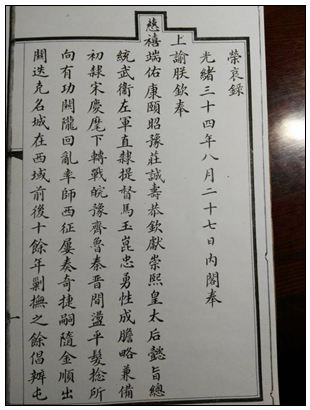 榮哀錄
光緒三十四年八月二十七日內閣奉
上諭朕欽奉
慈禧端佑康頤昭豫莊誠壽恭欽獻崇熙皇太后懿旨總
統武衛左軍直隸提督馬玉崑忠勇性成膽略兼備
初隸宋慶麾下轉戰皖豫齊魯秦晉間盪平髮捻所
向有功關隴回亂率師西征屢奏奇捷嗣隨金順出
關迭克名城在西域前後十餘年剿撫之餘倡辦屯